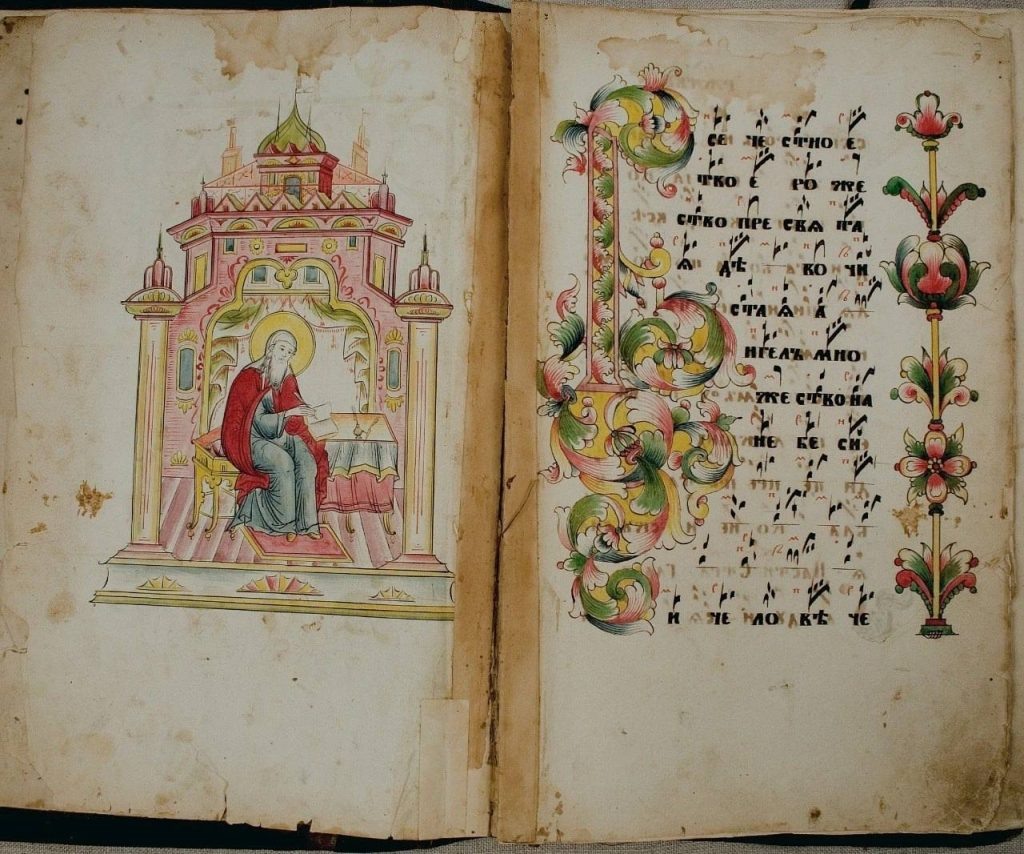 В СЕ ЧЕ СТНО Е
ТВО Е РО ЖЕ
СТВО ПРЕ СВѦ ТА
Ѧ ДѢ ВО ЧИ
СТАѦ А
НГЕЛЪ МНО
ЖЕ СТВО НА
НЕ БЕ СИ
И ЧЕ ЛО ВѢ ЧЕ